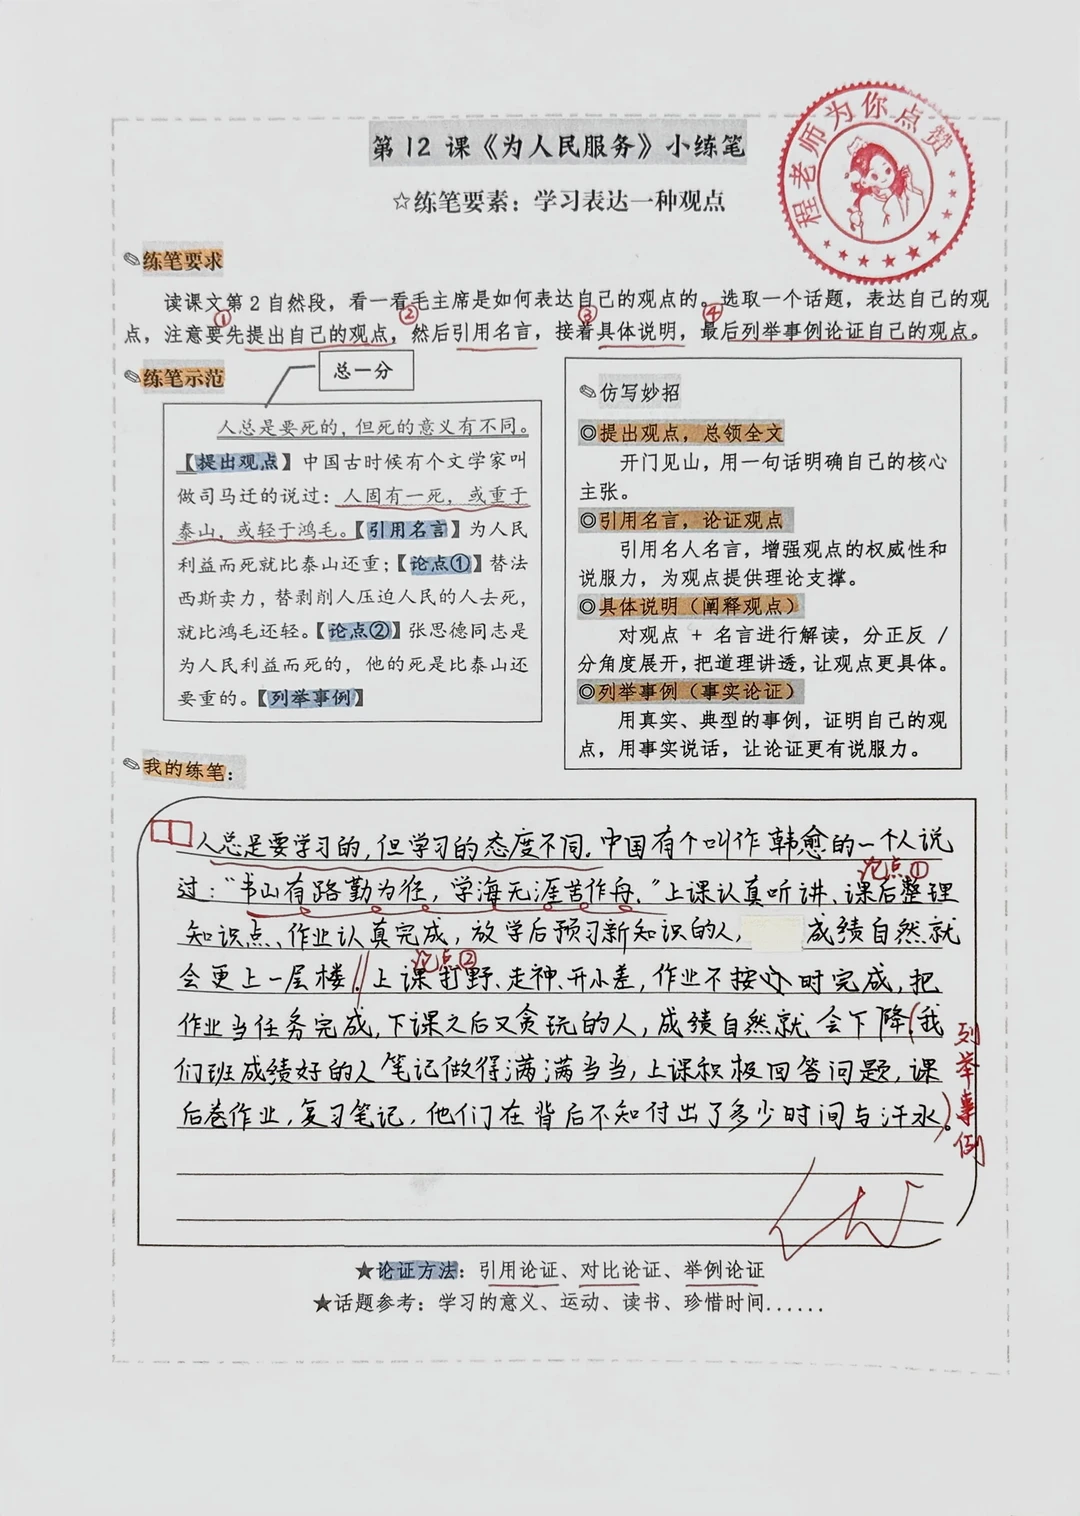 程老师为你点赞
第12课《为人民服务》小练笔
☆练笔要素：学习表达一种观点
练笔要求
读课文第2自然段，看一看毛主席是如何表达自己的观点的。选取一个话题，表达自己的观
① ② ③ ④
点，注意要先提出自己的观点，然后引用名言，接着具体说明，最后列举事例论证自己的观点。
练笔示范
总一分
人总是要死的，但死的意义有不同。
【提出观点】中国古时候有个文学家叫
做司马迁的说过：人固有一死，或重于
泰山，或轻于鸿毛。【引用名言】为人民
利益而死就比泰山还重；【论点①】替法
西斯卖力，替剥削人压迫人民的人去死，
就比鸿毛还轻。【论点②】张思德同志是
为人民利益而死的，他的死是比泰山还
要重的。【列举事例】
仿写妙招
◎提出观点，总领全文
开门见山，用一句话明确自己的核心
主张。
◎引用名言，论证观点
引用名人名言，增强观点的权威性和
说服力，为观点提供理论支撑。
◎具体说明（阐释观点）
对观点 + 名言进行解读，分正反 /
分角度展开，把道理讲透，让观点更具体。
◎列举事例（事实论证）
用真实、典型的事例，证明自己的观
点，用事实说话，让论证更有说服力。
我的练笔：
人总是要学习的，但学习的态度不同。中国有个叫作韩愈的一个人说
论点①
过：“书山有路勤为径，学海无涯苦作舟。”上课认真听讲、课后整理
知识点、作业认真完成，放学后预习新知识的人，成绩自然就
论点②
会更上一层楼。上课打野、走神、开小差，作业不按时完成，把
作业当任务完成，下课之后又贪玩的人，成绩自然就会下降（我
们班成绩好的人笔记做得满满当当，上课积极回答问题，课
后卷作业，复习笔记，他们在背后不知付出了多少时间与汗水）。
列举事例
★论证方法：引用论证、对比论证、举例论证
★话题参考：学习的意义、运动、读书、珍惜时间......